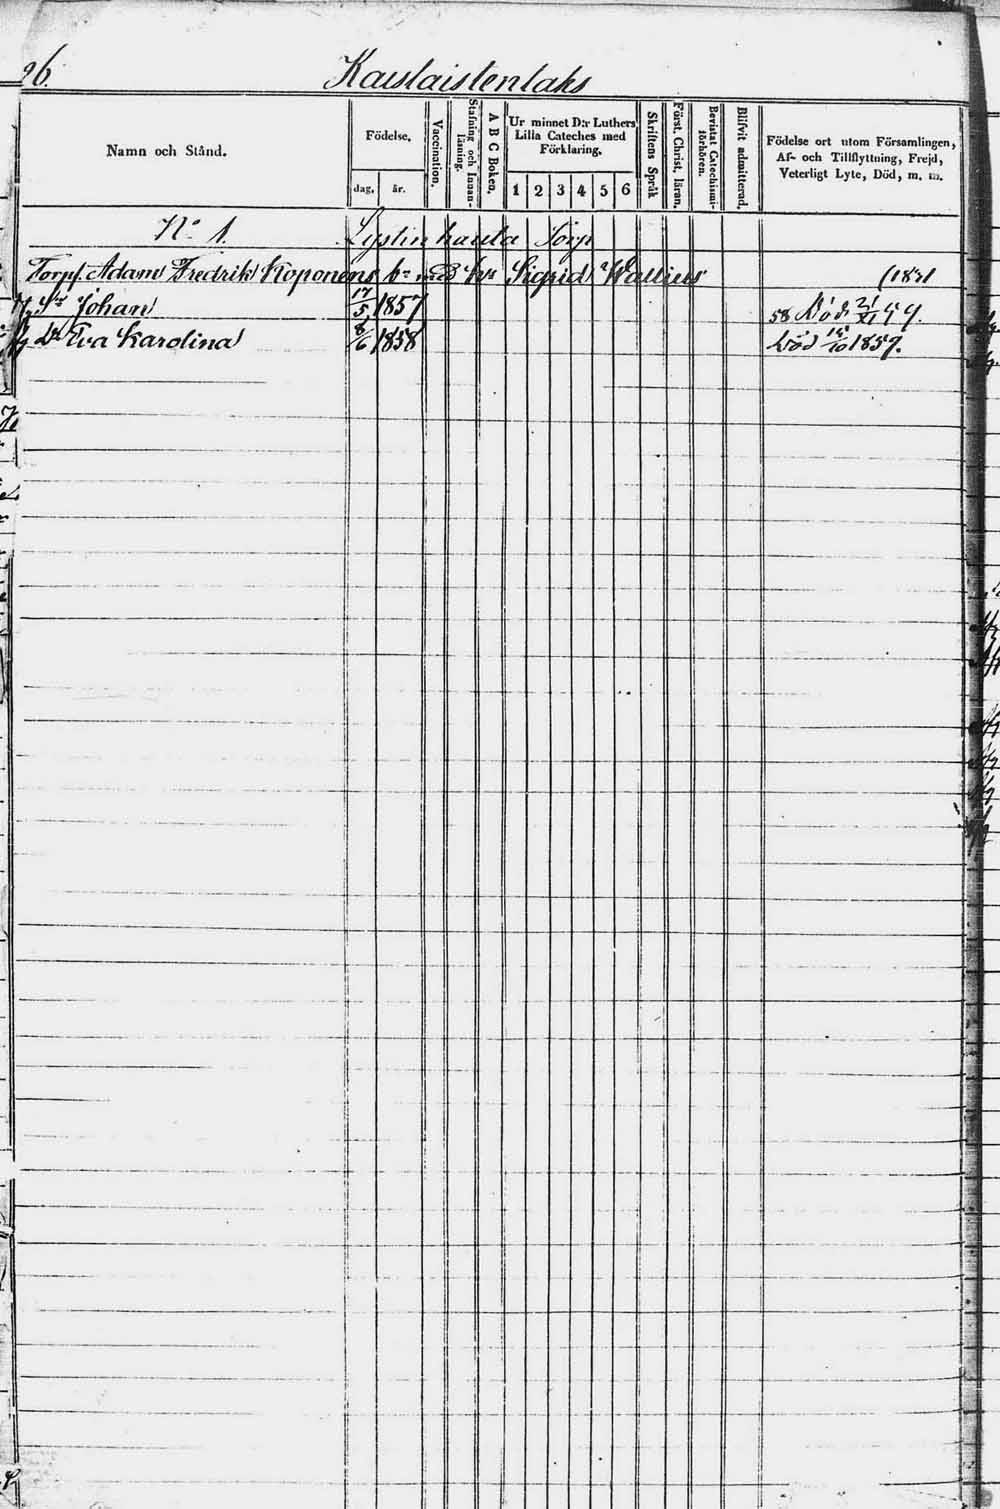 26.
Kauslaistenlaks
Namn och Stånd.
Födelse.
dag. år.
Vaccination.
Stafning och Innan-läsning.
A B C Boken.
Ur minnet D:r Luthers
Lilla Cateches med
Förklaring.
1 2 3 4 5 6
Skriftens Språk
Först. Christ. läran.
Bevistat Catechismi-förhören.
Blifvit admitterad.
Födelse ort utom Församlingen,
Af- och Tillflyttning, Frejd,
Veterligt Lyte, Död, m. m.
No 1. Torp
Torp. Adam Fredrik Koponens med Sigrid (1831
Johan 17/5 1857 58 Död 21/XI 59.
Dr Eva Karolina 8/6 1858 Död 15/10 1857.